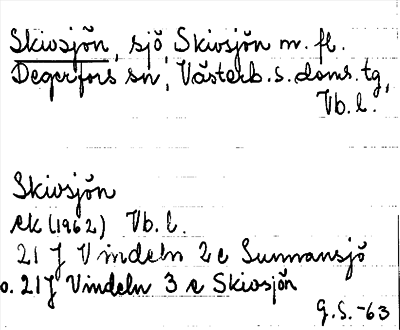 Skivsjön, sjö, Skivsjön m. fl.
Degerfors sn, Västerb. s. doms. tg,
Vb. l.
Skivsjön
ek (1962) Vb. l.
21 J Vindeln 2 c Sunnansjö
o. 21 J Vindeln 3 a Skivsjön
G.S. -63